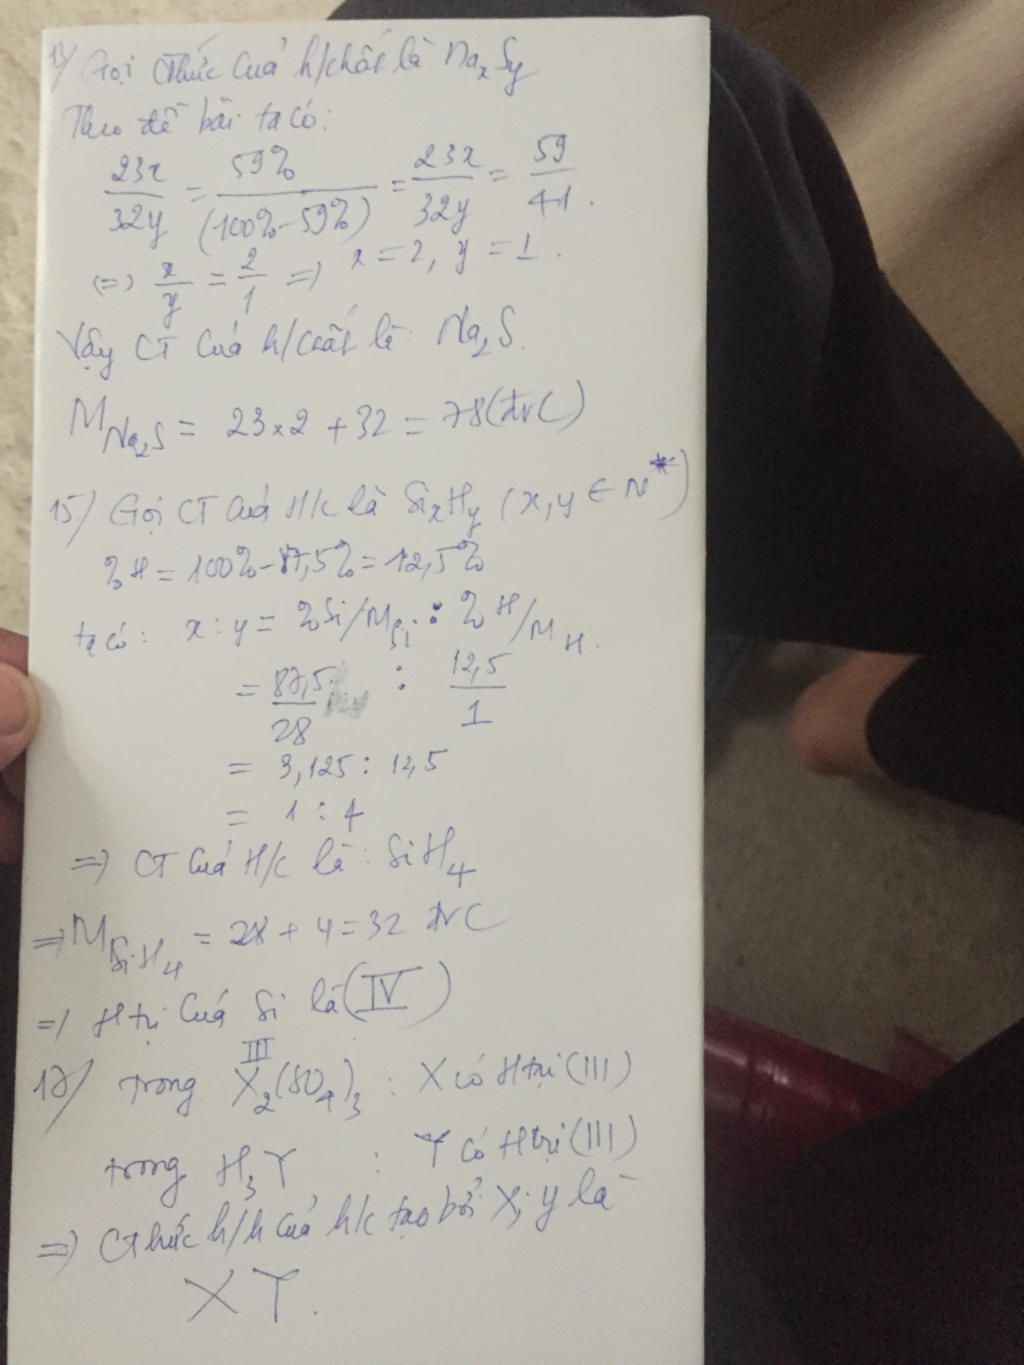 13/ Gọi CThức Của h/chất là NaxSy
Theo đề bài ta có:
23x/32y = 59%/(100%-59%) = 23x/32y = 59/41.
(=) x/y = 2/1 =) x = 2, y = 1.
Vậy CT Của h/chất là: Na2S.
M Na2S = 23x2 + 32 = 78(đvC)
15/ Gọi CT Của H/c là SixHy (x,y ∈ N*)
%H = 100%-87,5% = 12,5%
ta có: x : y = %Si/MSi : %H/MH.
= 87,5/28 : 12,5/1
= 3,125 : 12,5
= 1 : 4
=) CT Của H/c là: SiH4
=) M SiH4 = 28 + 4 = 32 đvC
=) Htrị Của Si là (IV)
trong X2(SO4)3 : X có Htrị (III)
III
trong H3Y : Y có Htrị (III)
=) CThức h/h của h/c tạo bởi X, y là
XY.